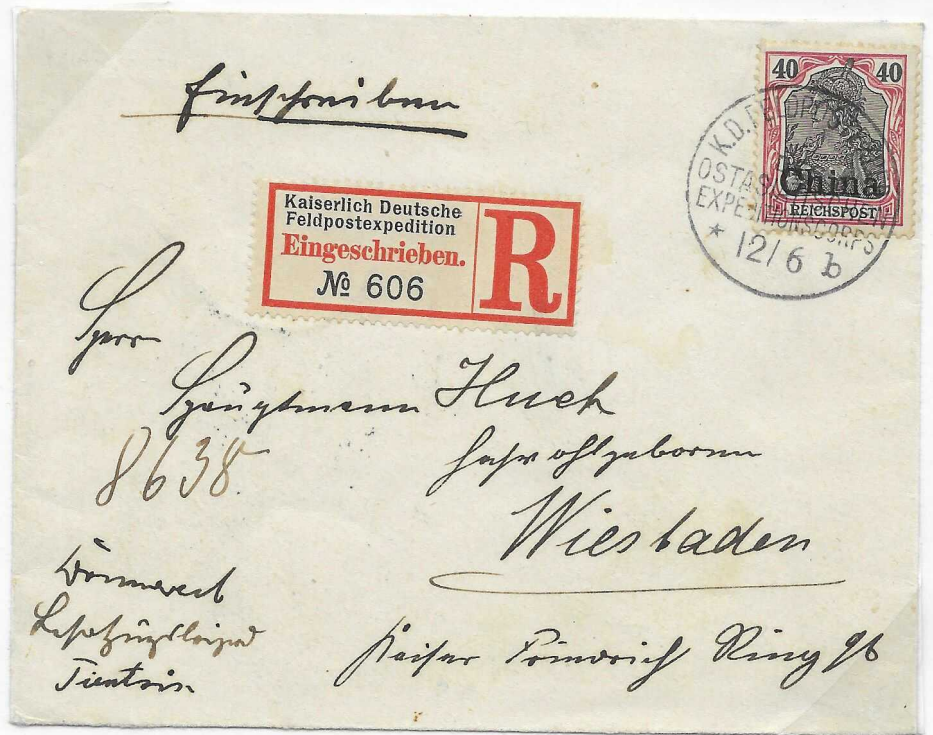 Einschreiben
40 40
China
REICHSPOST
K.D. FELDPOST
EXPEDITIONSCORPS
* 12/6 b
Kaiserlich Deutsche
Feldpostexpedition
Eingeschrieben.
№ 606
R
Herr
Hauptmann Huch
Hochwohlgeboren
8638
Wiesbaden
Tientsin
Kaiser Friedrich Ring 96